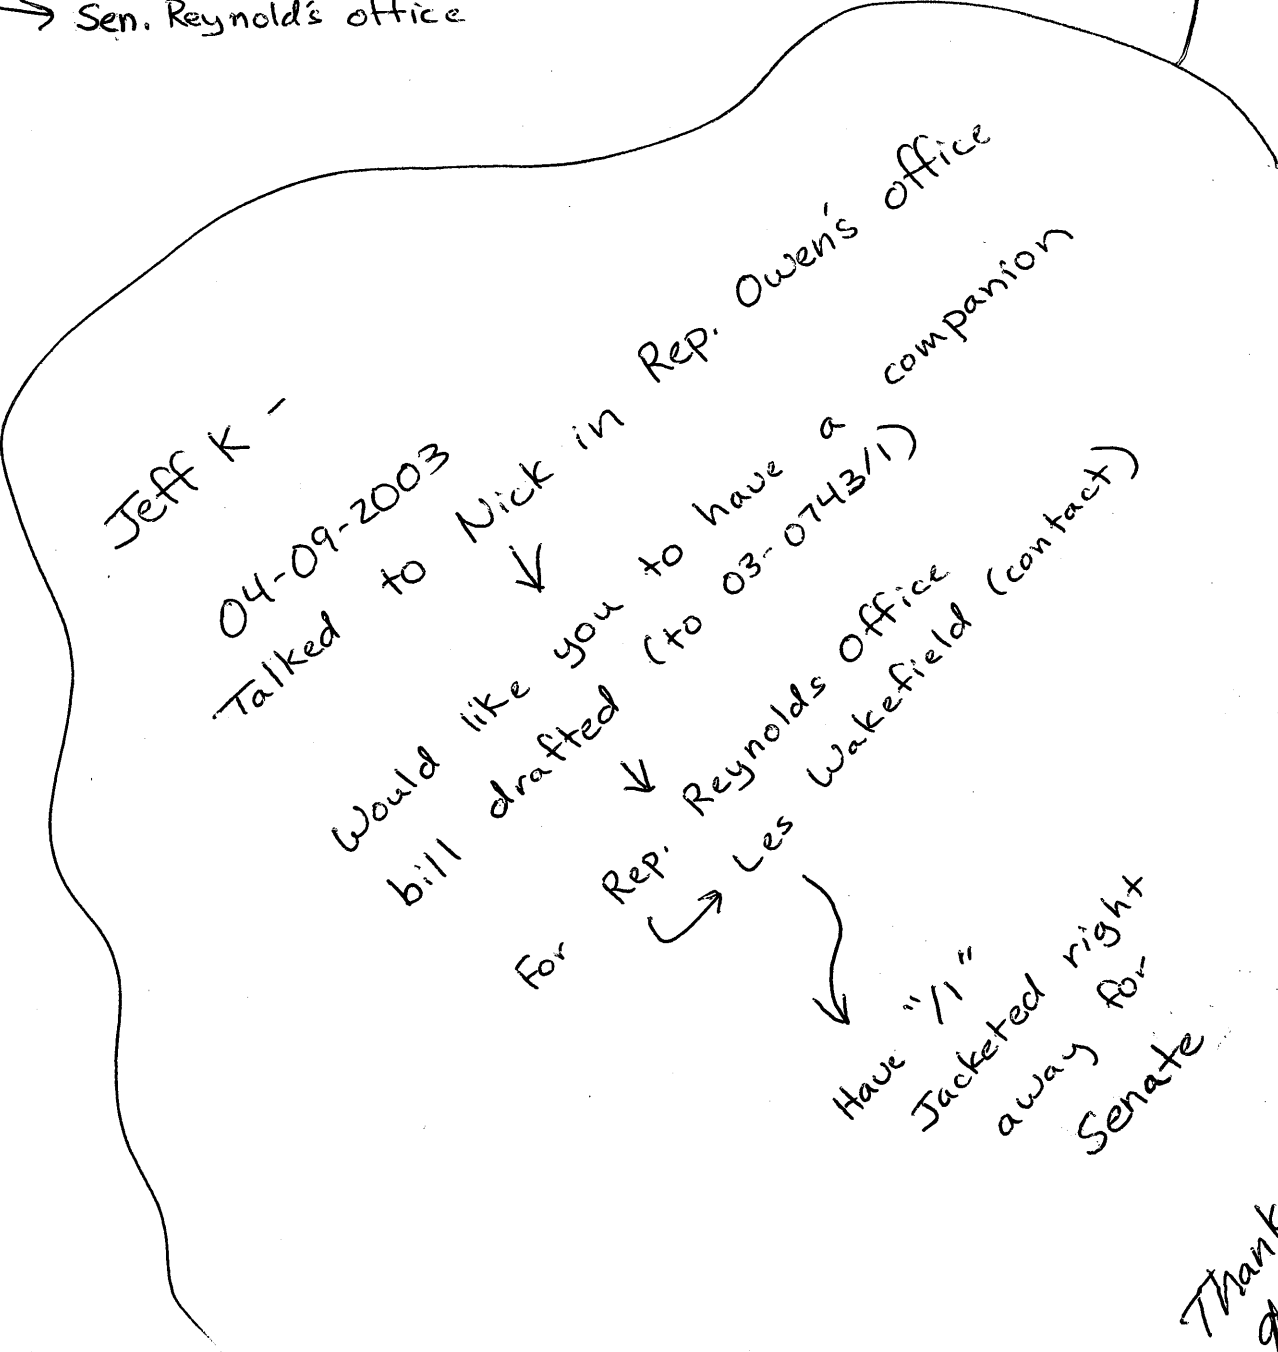 → Sen. Reynold's office
Jeff K -
04-09-2003
Talked to Nick in Rep. Owen's office
↓
Would like you to have a companion
bill drafted (to 03-0743/1)
↓
For Rep. Reynolds Office
↳ Les Wakefield (contact)
↓
Have "/1"
Jacketed right
away for
Senate
Thank